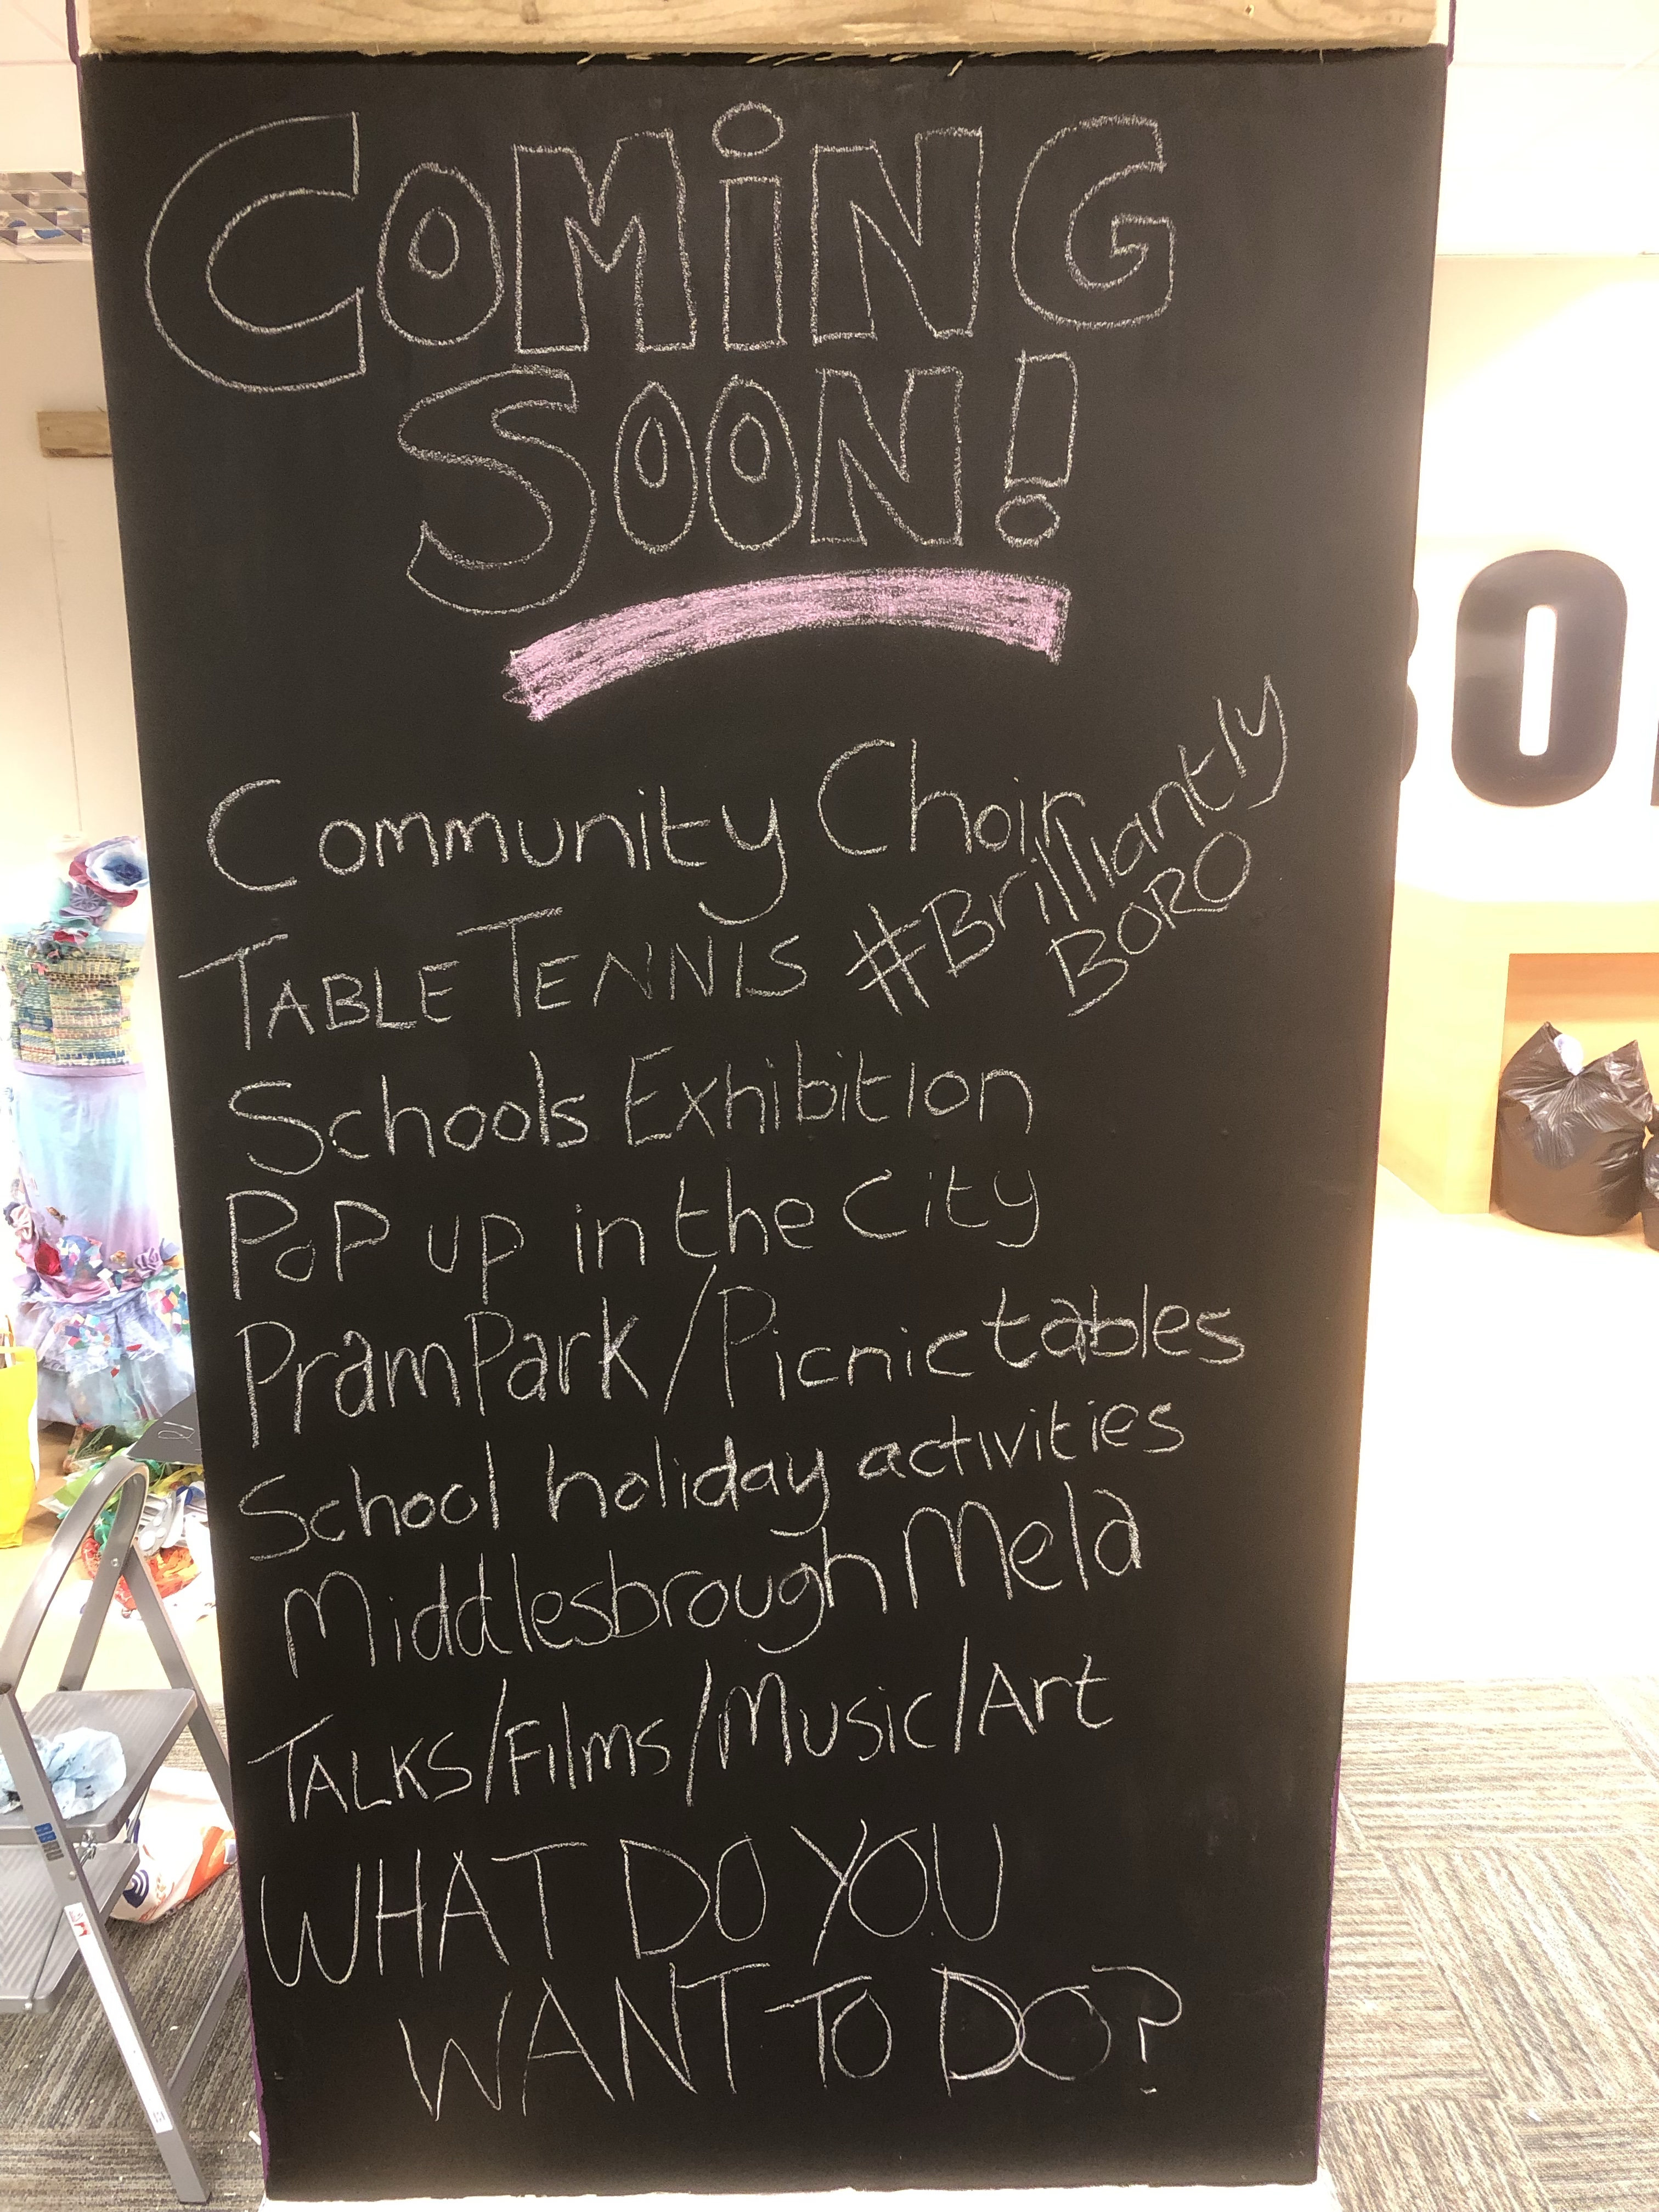 COMiNG
SOON!
Community Choir
#Brilliantly
BORO
TABLE TENNIS
Schools Exhibition
PoP up in the City
Pram Park/Picnic tables
School holiday activities
Middlesbrough Mela
TALKS/Films/Music/Art
WHAT DO YOU
WANT TO DO?